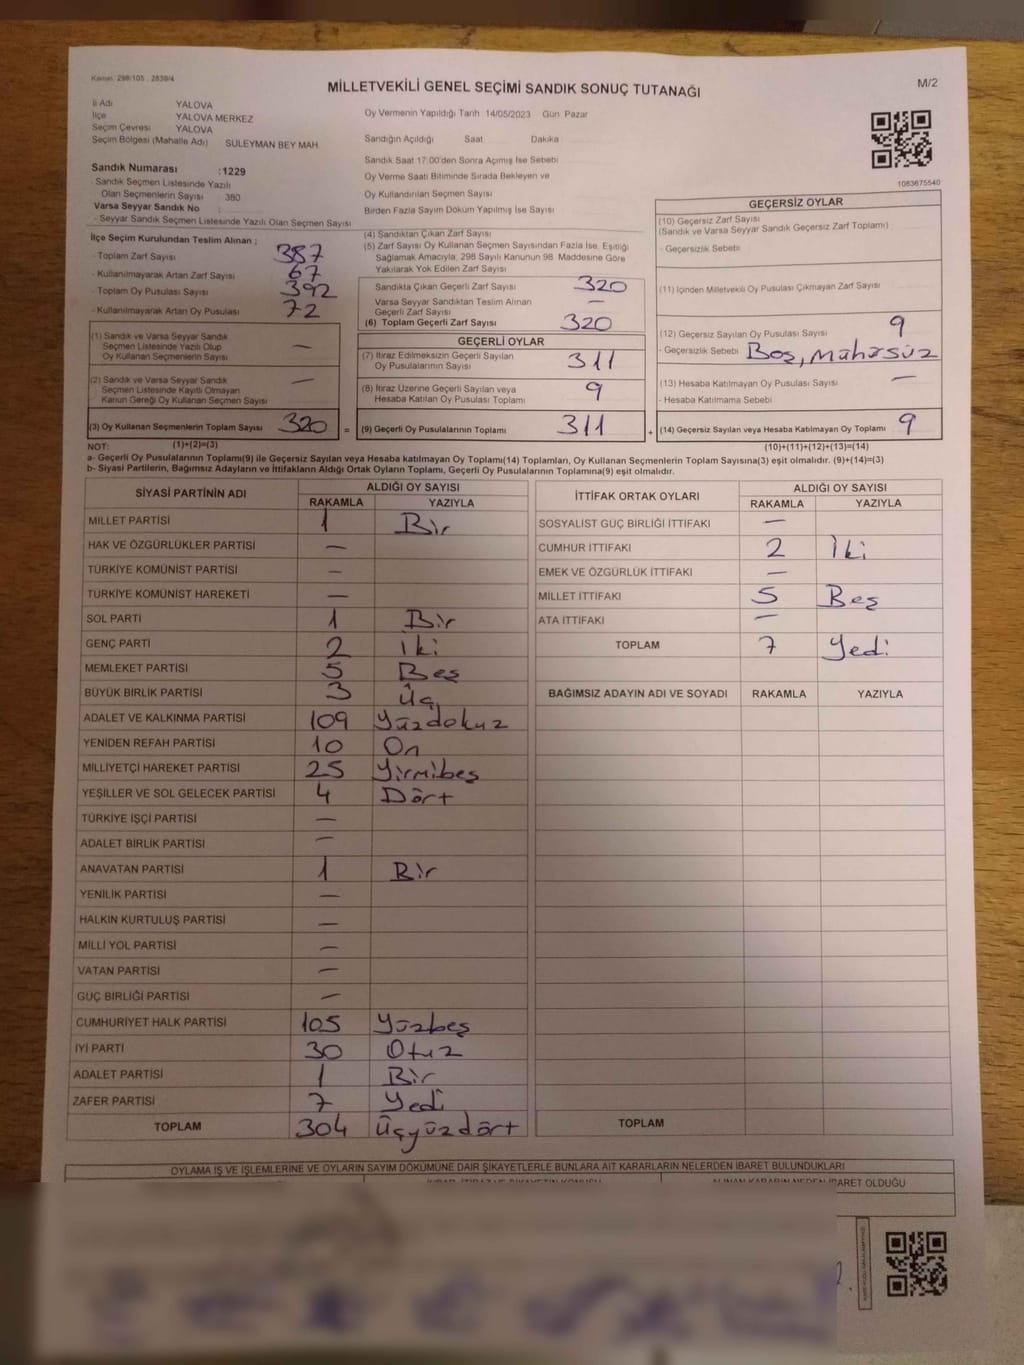 Kanun: 298/105 , 2839/4
MİLLETVEKİLİ GENEL SEÇİMİ SANDIK SONUÇ TUTANAĞI
M/2
İl Adı YALOVA
İlçe YALOVA MERKEZ
Seçim Çevresi YALOVA
Seçim Bölgesi (Mahalle Adı) SÜLEYMAN BEY MAH.
Oy Vermenin Yapıldığı Tarih 14/05/2023 Gün Pazar
Sandığın Açıldığı Saat Dakika
Sandık Saat 17:00'den Sonra Açılmış İse Sebebi
Oy Verme Saati Bitiminde Sırada Bekleyen ve
Oy Kullandırılan Seçmen Sayısı
Birden Fazla Sayım Döküm Yapılmış İse Sayısı
1083675540
Sandık Numarası :1229
- Sandık Seçmen Listesinde Yazılı
Olan Seçmenlerin Sayısı 380
Varsa Seyyar Sandık No :
- Seyyar Sandık Seçmen Listesinde Yazılı Olan Seçmen Sayısı
İlçe Seçim Kurulundan Teslim Alınan ;
- Toplam Zarf Sayısı 387
- Kullanılmayarak Artan Zarf Sayısı 67
- Toplam Oy Pusulası Sayısı 392
- Kullanılmayarak Artan Oy Pusulası 72
(1) Sandık ve Varsa Seyyar Sandık
Seçmen Listesinde Yazılı Olup
Oy Kullanan Seçmenlerin Sayısı —
(2) Sandık ve Varsa Seyyar Sandık
Seçmen Listesinde Kayıtlı Olmayan
Kanun Gereği Oy Kullanan Seçmen Sayısı —
(3) Oy Kullanan Seçmenlerin Toplam Sayısı 320 =
(4) Sandıktan Çıkan Zarf Sayısı
(5) Zarf Sayısı Oy Kullanan Seçmen Sayısından Fazla İse, Eşitliği
Sağlamak Amacıyla, 298 Sayılı Kanunun 98. Maddesine Göre
Yakılarak Yok Edilen Zarf Sayısı
Sandıkta Çıkan Geçerli Zarf Sayısı 320
Varsa Seyyar Sandıktan Teslim Alınan
Geçerli Zarf Sayısı —
(6) Toplam Geçerli Zarf Sayısı 320
GEÇERLİ OYLAR
(7) İtiraz Edilmeksizin Geçerli Sayılan
Oy Pusulalarının Sayısı 311
(8) İtiraz Üzerine Geçerli Sayılan veya
Hesaba Katılan Oy Pusulası Toplamı 9
(9) Geçerli Oy Pusulalarının Toplamı 311 +
GEÇERSİZ OYLAR
(10) Geçersiz Zarf Sayısı
(Sandık ve Varsa Seyyar Sandık Geçersiz Zarf Toplamı)
- Geçersizlik Sebebi
(11) İçinden Milletvekili Oy Pusulası Çıkmayan Zarf Sayısı
(12) Geçersiz Sayılan Oy Pusulası Sayısı 9
- Geçersizlik Sebebi Boş, Mühürsüz
(13) Hesaba Katılmayan Oy Pusulası Sayısı —
- Hesaba Katılmama Sebebi
(14) Geçersiz Sayılan veya Hesaba Katılmayan Oy Toplamı 9
NOT: (1)+(2)=(3) (10)+(11)+(12)+(13)=(14)
a- Geçerli Oy Pusulaları Toplamı(9) ile Geçersiz Sayılan veya Hesaba katılmayan Oy Toplamı(14) Toplamları, Oy Kullanan Seçmenlerin Toplam Sayısına(3) eşit olmalıdır. (9)+(14)=(3)
b- Siyasi Partilerin, Bağımsız Adayların ve İttifakların Aldığı Ortak Oyların Toplamı, Geçerli Oy Pusulalarının Toplamına(9) eşit olmalıdır.
SİYASİ PARTİNİN ADI ALDIĞI OY SAYISI
RAKAMLA YAZIYLA
MİLLET PARTİSİ 1 Bir
HAK VE ÖZGÜRLÜKLER PARTİSİ —
TÜRKİYE KOMÜNİST PARTİSİ —
TÜRKİYE KOMÜNİST HAREKETİ —
SOL PARTİ 1 Bir
GENÇ PARTİ 2 İki
MEMLEKET PARTİSİ 5 Beş
BÜYÜK BİRLİK PARTİSİ 3 Üç
ADALET VE KALKINMA PARTİSİ 109 Yüzdokuz
YENİDEN REFAH PARTİSİ 10 On
MİLLİYETÇİ HAREKET PARTİSİ 25 Yirmibeş
YEŞİLLER VE SOL GELECEK PARTİSİ 4 Dört
TÜRKİYE İŞÇİ PARTİSİ —
ADALET BİRLİK PARTİSİ —
ANAVATAN PARTİSİ 1 Bir
YENİLİK PARTİSİ —
HALKIN KURTULUŞ PARTİSİ —
MİLLİ YOL PARTİSİ —
VATAN PARTİSİ —
GÜÇ BİRLİĞİ PARTİSİ —
CUMHURİYET HALK PARTİSİ 105 Yüzbeş
İYİ PARTİ 30 Otuz
ADALET PARTİSİ 1 Bir
ZAFER PARTİSİ 7 Yedi
TOPLAM 304 Üçyüzdört
İTTİFAK ORTAK OYLARI ALDIĞI OY SAYISI
RAKAMLA YAZIYLA
SOSYALİST GÜÇ BİRLİĞİ İTTİFAKI —
CUMHUR İTTİFAKI 2 İki
EMEK VE ÖZGÜRLÜK İTTİFAKI —
MİLLET İTTİFAKI 5 Beş
ATA İTTİFAKI —
TOPLAM 7 Yedi
BAĞIMSIZ ADAYIN ADI VE SOYADI RAKAMLA YAZIYLA
TOPLAM
OYLAMA İŞ VE İŞLEMLERİNE VE OYLARIN SAYIM DÖKÜMÜNE DAİR ŞİKAYETLERLE BUNLARA AİT KARARLARIN NELERDEN İBARET BULUNDUKLARI
ALINAN KARARIN NEDEN İBARET OLDUĞU